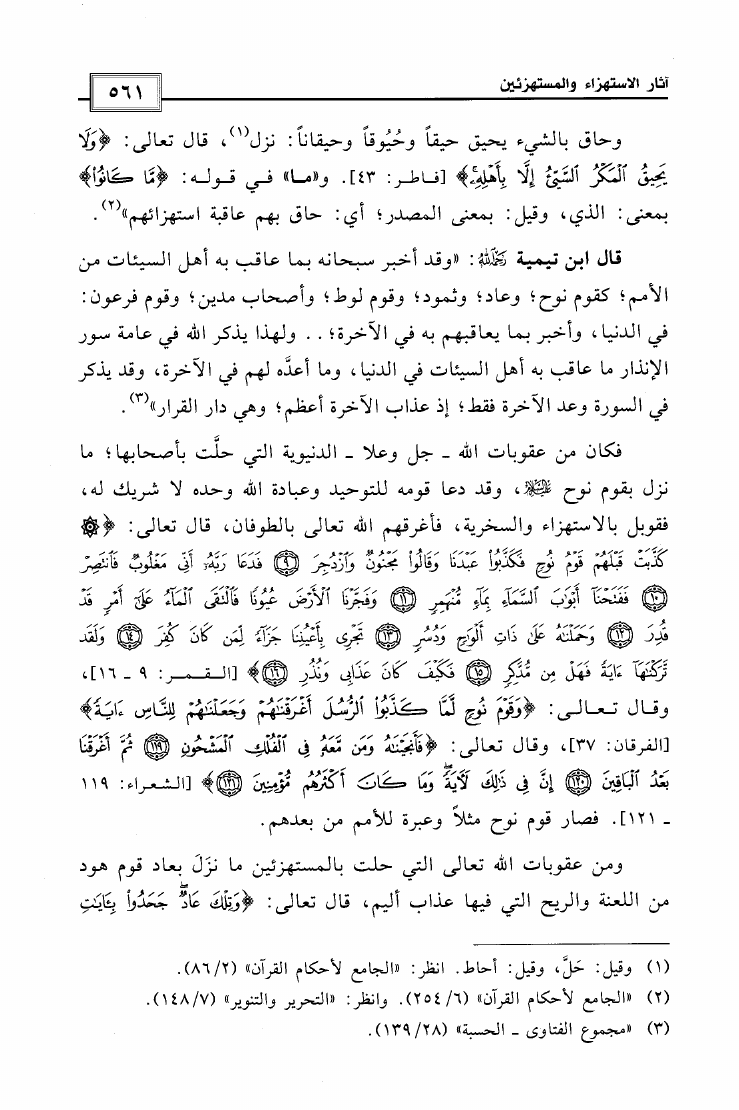 آثار الاستهزاء والمستهزئين
٥٦١
وحاق بالشيء يحيق حيقاً وحُيُوقاً وحيقاناً: نزل(١)، قال تعالى: ﴿وَلَا
يَحِيقُ ٱلۡمَكۡرُ ٱلسَّيِّئُ إِلَّا بِأَهۡلِهِۦۚ﴾ [فاطر: ٤٣]. و«ما» في قوله: ﴿مَّا كَانُوا۟﴾
بمعنى: الذي، وقيل: بمعنى المصدر؛ أي: حاق بهم عاقبة استهزائهم»(٢).
قال ابن تيمية رَحِمَهُ اللهُ: «وقد أخبر سبحانه بما عاقب به أهل السيئات من
الأمم؛ كقوم نوح؛ وعاد؛ وثمود؛ وقوم لوط؛ وأصحاب مدين؛ وقوم فرعون:
في الدنيا، وأخبر بما يعاقبهم به في الآخرة؛ .. ولهذا يذكر الله في عامة سور
الإنذار ما عاقب به أهل السيئات في الدنيا، وما أعدَّه لهم في الآخرة، وقد يذكر
في السورة وعد الآخرة فقط؛ إذ عذاب الآخرة أعظم؛ وهي دار القرار»(٣).
فكان من عقوبات الله ـ جل وعلا ـ الدنيوية التي حلَّت بأصحابها؛ ما
نزل بقوم نوح عَلَيْهِ السَّلَام، وقد دعا قومه للتوحيد وعبادة الله وحده لا شريك له،
فقوبل بالاستهزاء والسخرية، فأغرقهم الله تعالى بالطوفان، قال تعالى: ﴿۞
كَذَّبَتۡ قَبۡلَهُمۡ قَوۡمُ نُوحٖ فَكَذَّبُوا۟ عَبۡدَنَا وَقَالُوا۟ مَجۡنُونٞ وَٱزۡدُجِرَ ﴿٩﴾ فَدَعَا رَبَّهُۥٓ أَنِّي مَغۡلُوبٞ فَٱنتَصِرۡ
﴿١٠﴾ فَفَتَحۡنَآ أَبۡوَٰبَ ٱلسَّمَآءِ بِمَآءٖ مُّنۡهَمِرٖ ﴿١١﴾ وَفَجَّرۡنَا ٱلۡأَرۡضَ عُيُونٗا فَٱلۡتَقَى ٱلۡمَآءُ عَلَىٰٓ أَمۡرٖ قَدۡ
قُدِرَ ﴿١٢﴾ وَحَمَلۡنَٰهُ عَلَىٰ ذَاتِ أَلۡوَٰحٖ وَدُسُرٖ ﴿١٣﴾ تَجۡرِي بِأَعۡيُنِنَا جَزَآءٗ لِّمَن كَانَ كُفِرَ ﴿١٤﴾ وَلَقَد
تَّرَكۡنَٰهَآ ءَايَةٗ فَهَلۡ مِن مُّدَّكِرٖ ﴿١٥﴾ فَكَيۡفَ كَانَ عَذَابِي وَنُذُرِ ﴿١٦﴾﴾ [القمر: ٩ ـ ١٦]،
وقال تعالى: ﴿وَقَوۡمَ نُوحٖ لَّمَّا كَذَّبُوا۟ ٱلرُّسُلَ أَغۡرَقۡنَٰهُمۡ وَجَعَلۡنَٰهُمۡ لِلنَّاسِ ءَايَةٗ﴾
[الفرقان: ٣٧]، وقال تعالى: ﴿فَأَنجَيۡنَٰهُ وَمَن مَّعَهُۥ فِي ٱلۡفُلۡكِ ٱلۡمَشۡحُونِ ﴿١١٩﴾ ثُمَّ أَغۡرَقۡنَا
بَعۡدُ ٱلۡبَاقِينَ ﴿١٢٠﴾ إِنَّ فِي ذَٰلِكَ لَأٓيَةٗۖ وَمَا كَانَ أَكۡثَرُهُم مُّؤۡمِنِينَ ﴿١٢١﴾﴾ [الشعراء: ١١٩
ـ ١٢١]. فصار قوم نوح مثلاً وعبرة للأمم من بعدهم.
ومن عقوبات الله تعالى التي حلت بالمستهزئين ما نزَلَ بعاد قوم هود
من اللعنة والريح التي فيها عذاب أليم، قال تعالى: ﴿وَتِلۡكَ عَادٞۖ جَحَدُوا۟ بِـَٔايَٰتِ
(١) وقيل: حَلَّ، وقيل: أحاط. انظر: «الجامع لأحكام القرآن» (٨٦/٢).
(٢) «الجامع لأحكام القرآن» (٢٥٤/٦). وانظر: «التحرير والتنوير» (١٤٨/٧).
(٣) «مجموع الفتاوى ـ الحسبة» (١٣٩/٢٨).